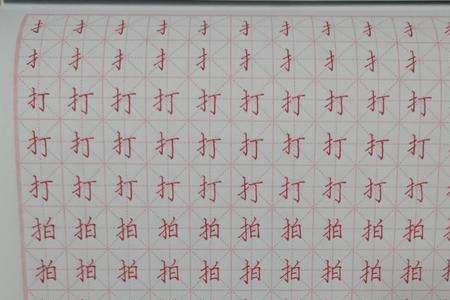 扌扌扌扌扌扌扌扌扌扌
扌扌扌扌扌扌扌扌扌扌
打打打打打打打打打打
打打打打打打打打打打
打打打打打打打打打打
拍拍拍拍拍拍拍拍拍拍
拍拍拍拍拍拍拍拍拍拍